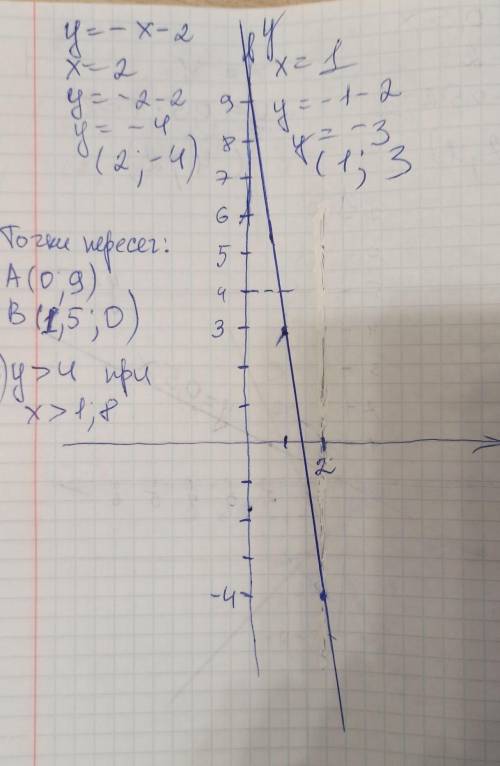 y = - x - 2
x = 2
y = -2-2
y = -4
(2; -4)
y
x = 1
y = -1-2
y = -3
(1; 3
Точки пересег:
A(0; 9)
B(1,5; 0)
) y > 4 при
x > 1; 8
9
8
7
6
5
4
3
2
-4